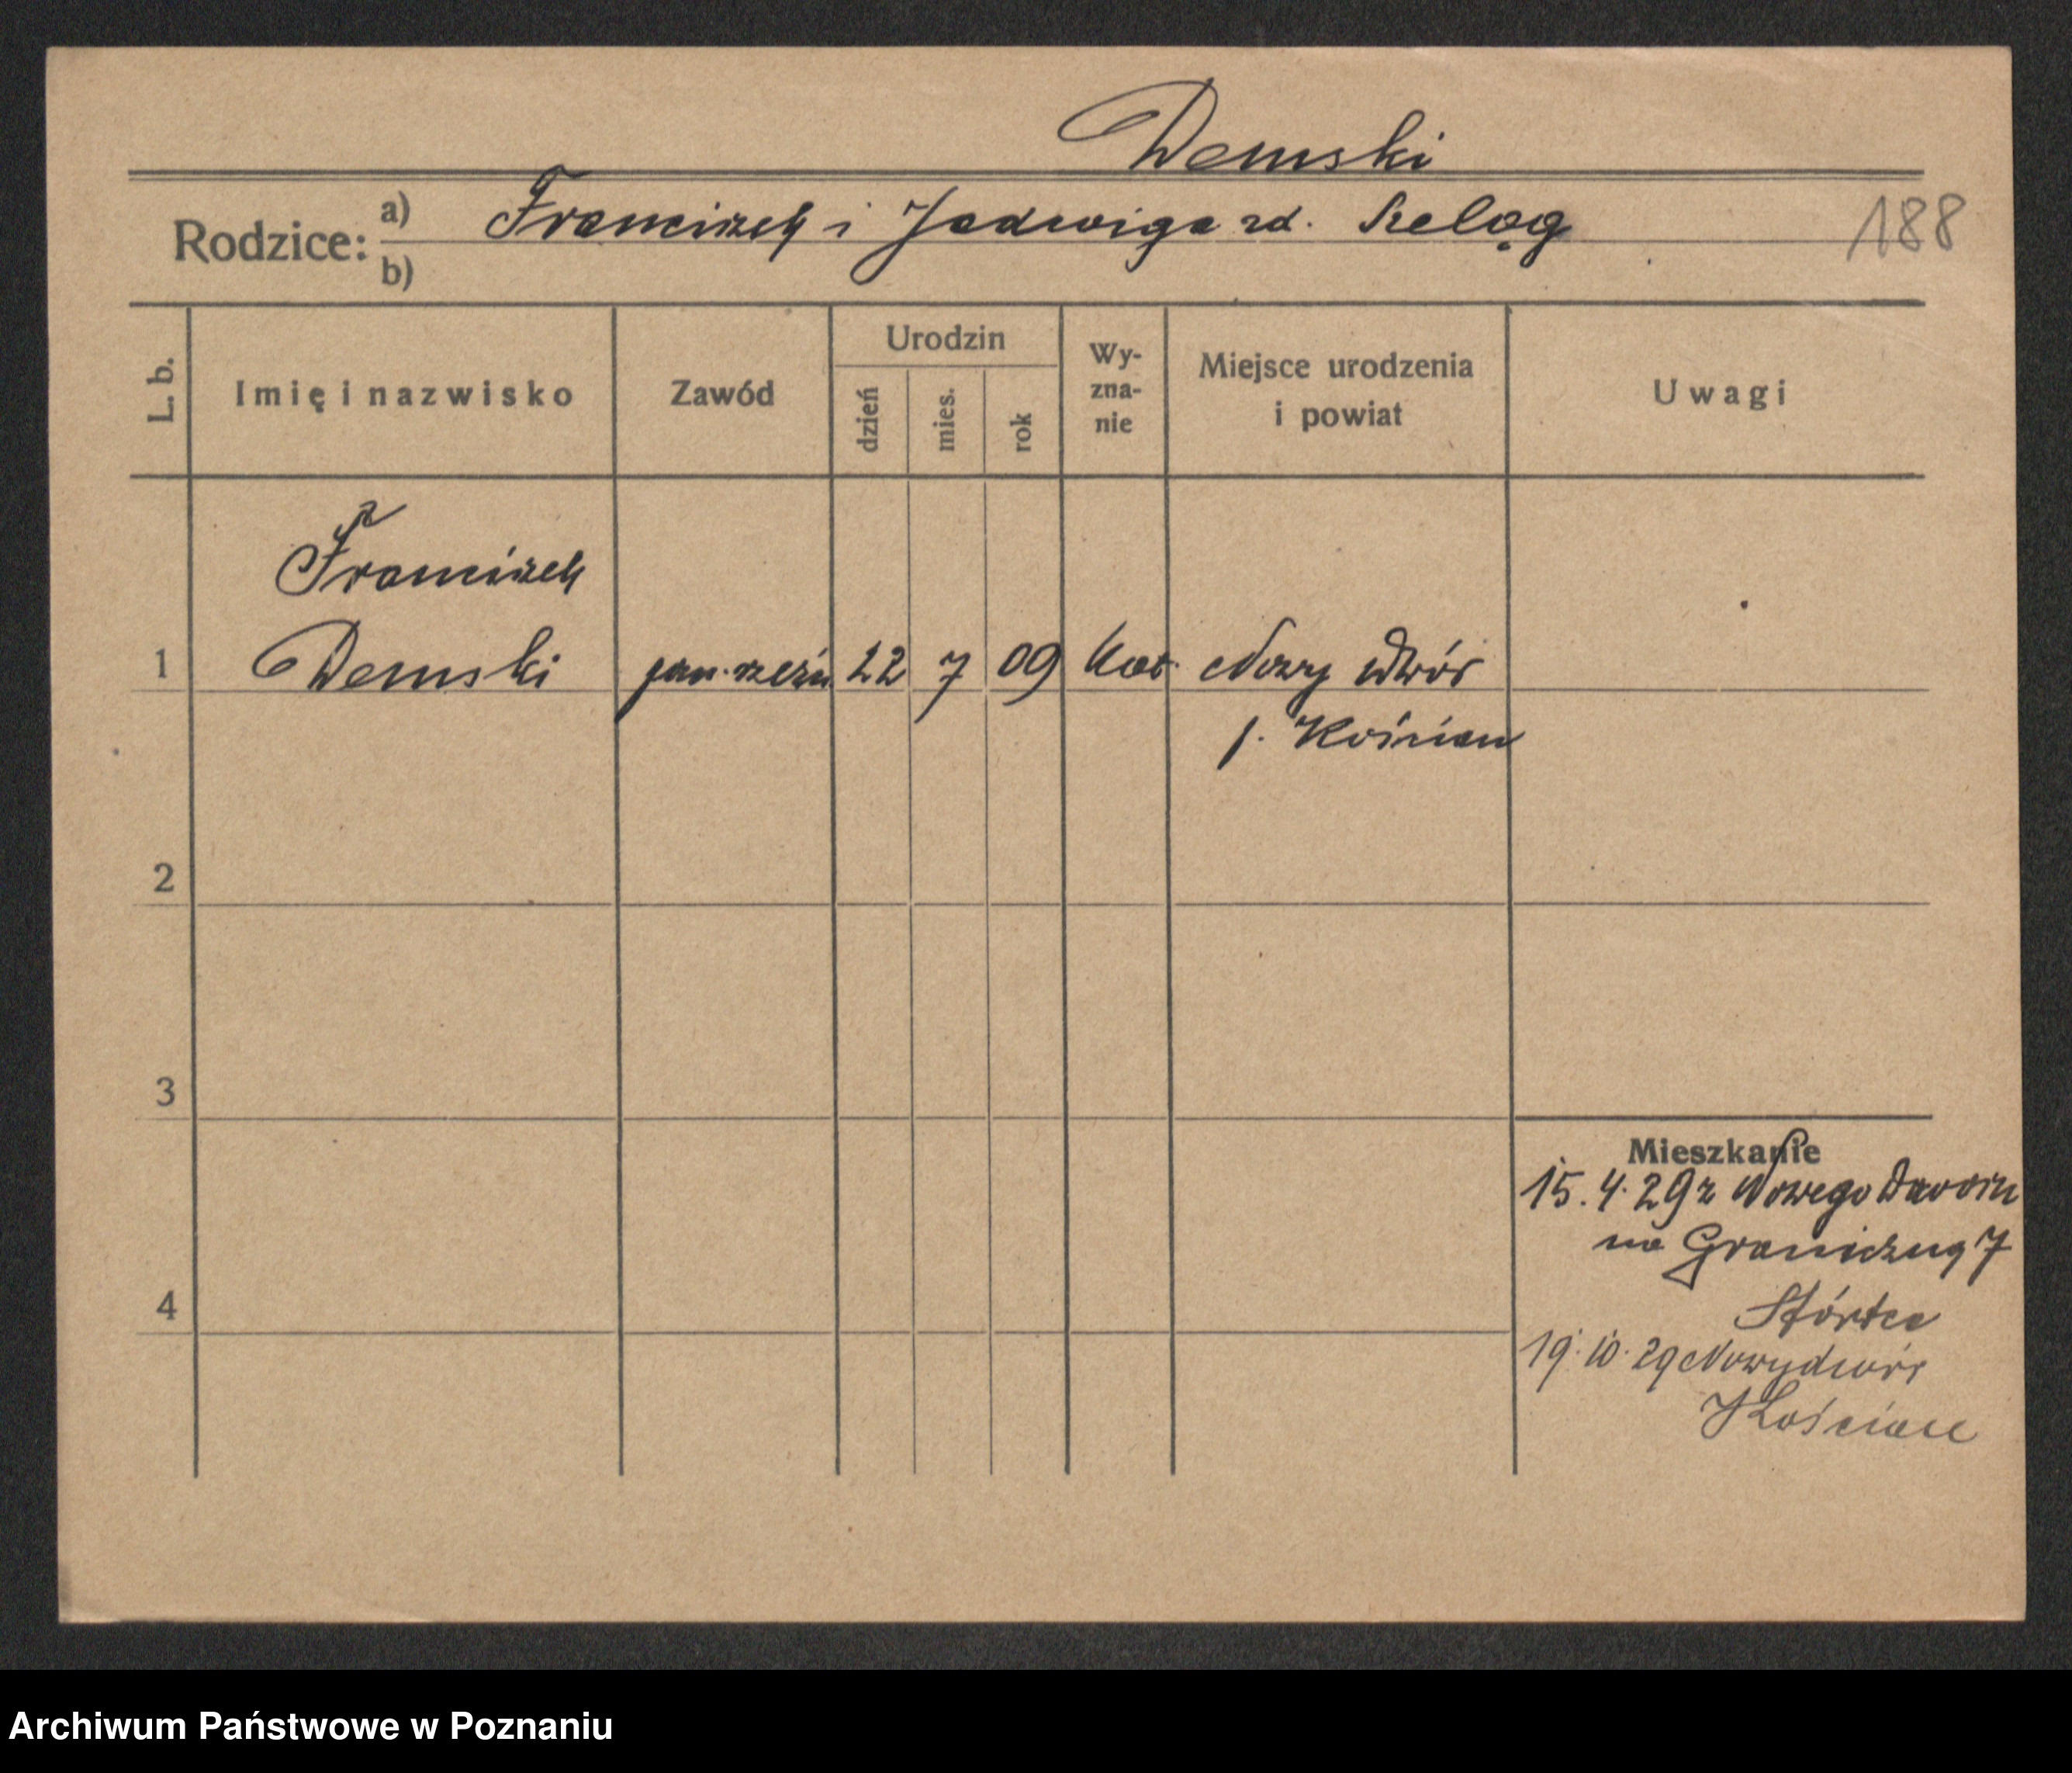 Demski
Rodzice: a) Franciszek i Jadwiga zd. Szeląg
188
b)
L. b.
Imię i nazwisko
Zawód
Urodzin
dzień
mies.
rok
Wy-
zna-
nie
Miejsce urodzenia
i powiat
Uwagi
Franciszek
1 Demski 22 7 09 kat. Nowy Dwór
p. Kościan
2
3
4
Mieszkanie
15.4.29 z Nowego Dworu
na Graniczną 7
19.10.29 Nowydwór
Kościan
Archiwum Państwowe w Poznaniu